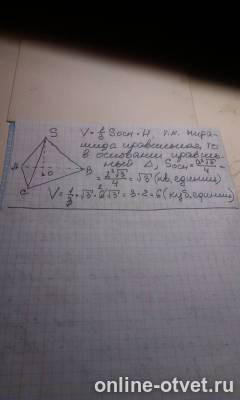 S
A
O
B
C
V = 1/3 Sосн · H, т.к. пира-
мида правильная, то
в основании правиль-
ный Δ, Sосн = a²√3/4 =
= 2²√3/4 = √3 (кв. единиц)
V = 1/3 · √3 · 6√3 = 3·2 = 6 (куб. единиц)
online-otvet.ru